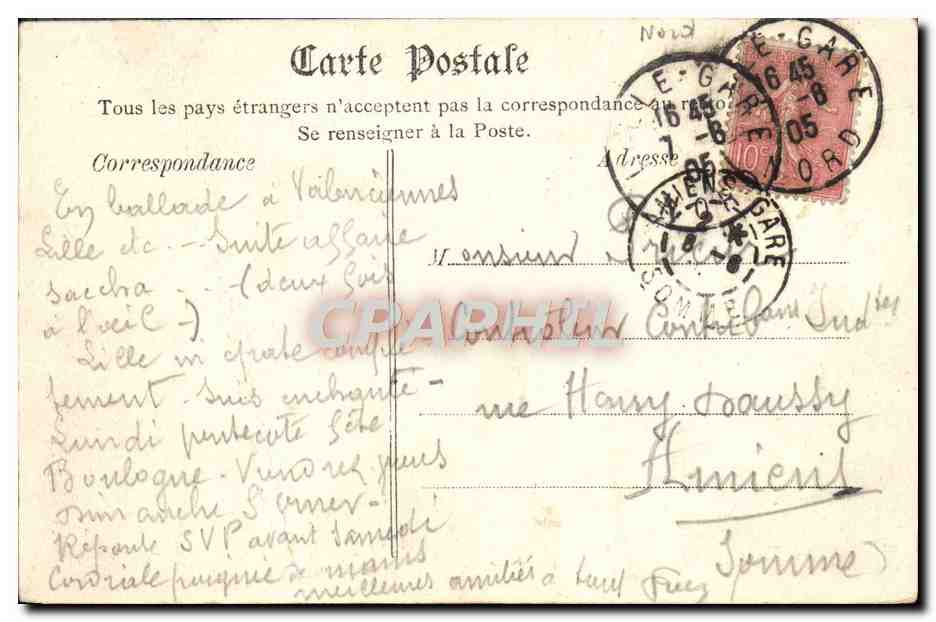 Nord
Carte Postale
Tous les pays étrangers n'acceptent pas la correspondance au recto.
Se renseigner à la Poste.
Correspondance
Adresse
LE-GARE
16 45
7 -6
05
LE-GARE
16 45
-6
05
NORD
10c
AMIENS-GARE
SOMME
En ballade à Valenciennes
Lille etc. - Suite affaire
saccha . . - (deux fois
à l'oeil -)
Lille
fement - suis enchanté -
Lundi pentecôte fête
Boulogne - Viendrez-vous
dimanche St Omer -
Réponse SVP avant Samedi
Cordiale poignée de mains
meilleures amitiés à tous
Monsieur
Controleur Contrib ions Ind tes
rue Henry Daussy
Amiens
Somme
CPAPHIL